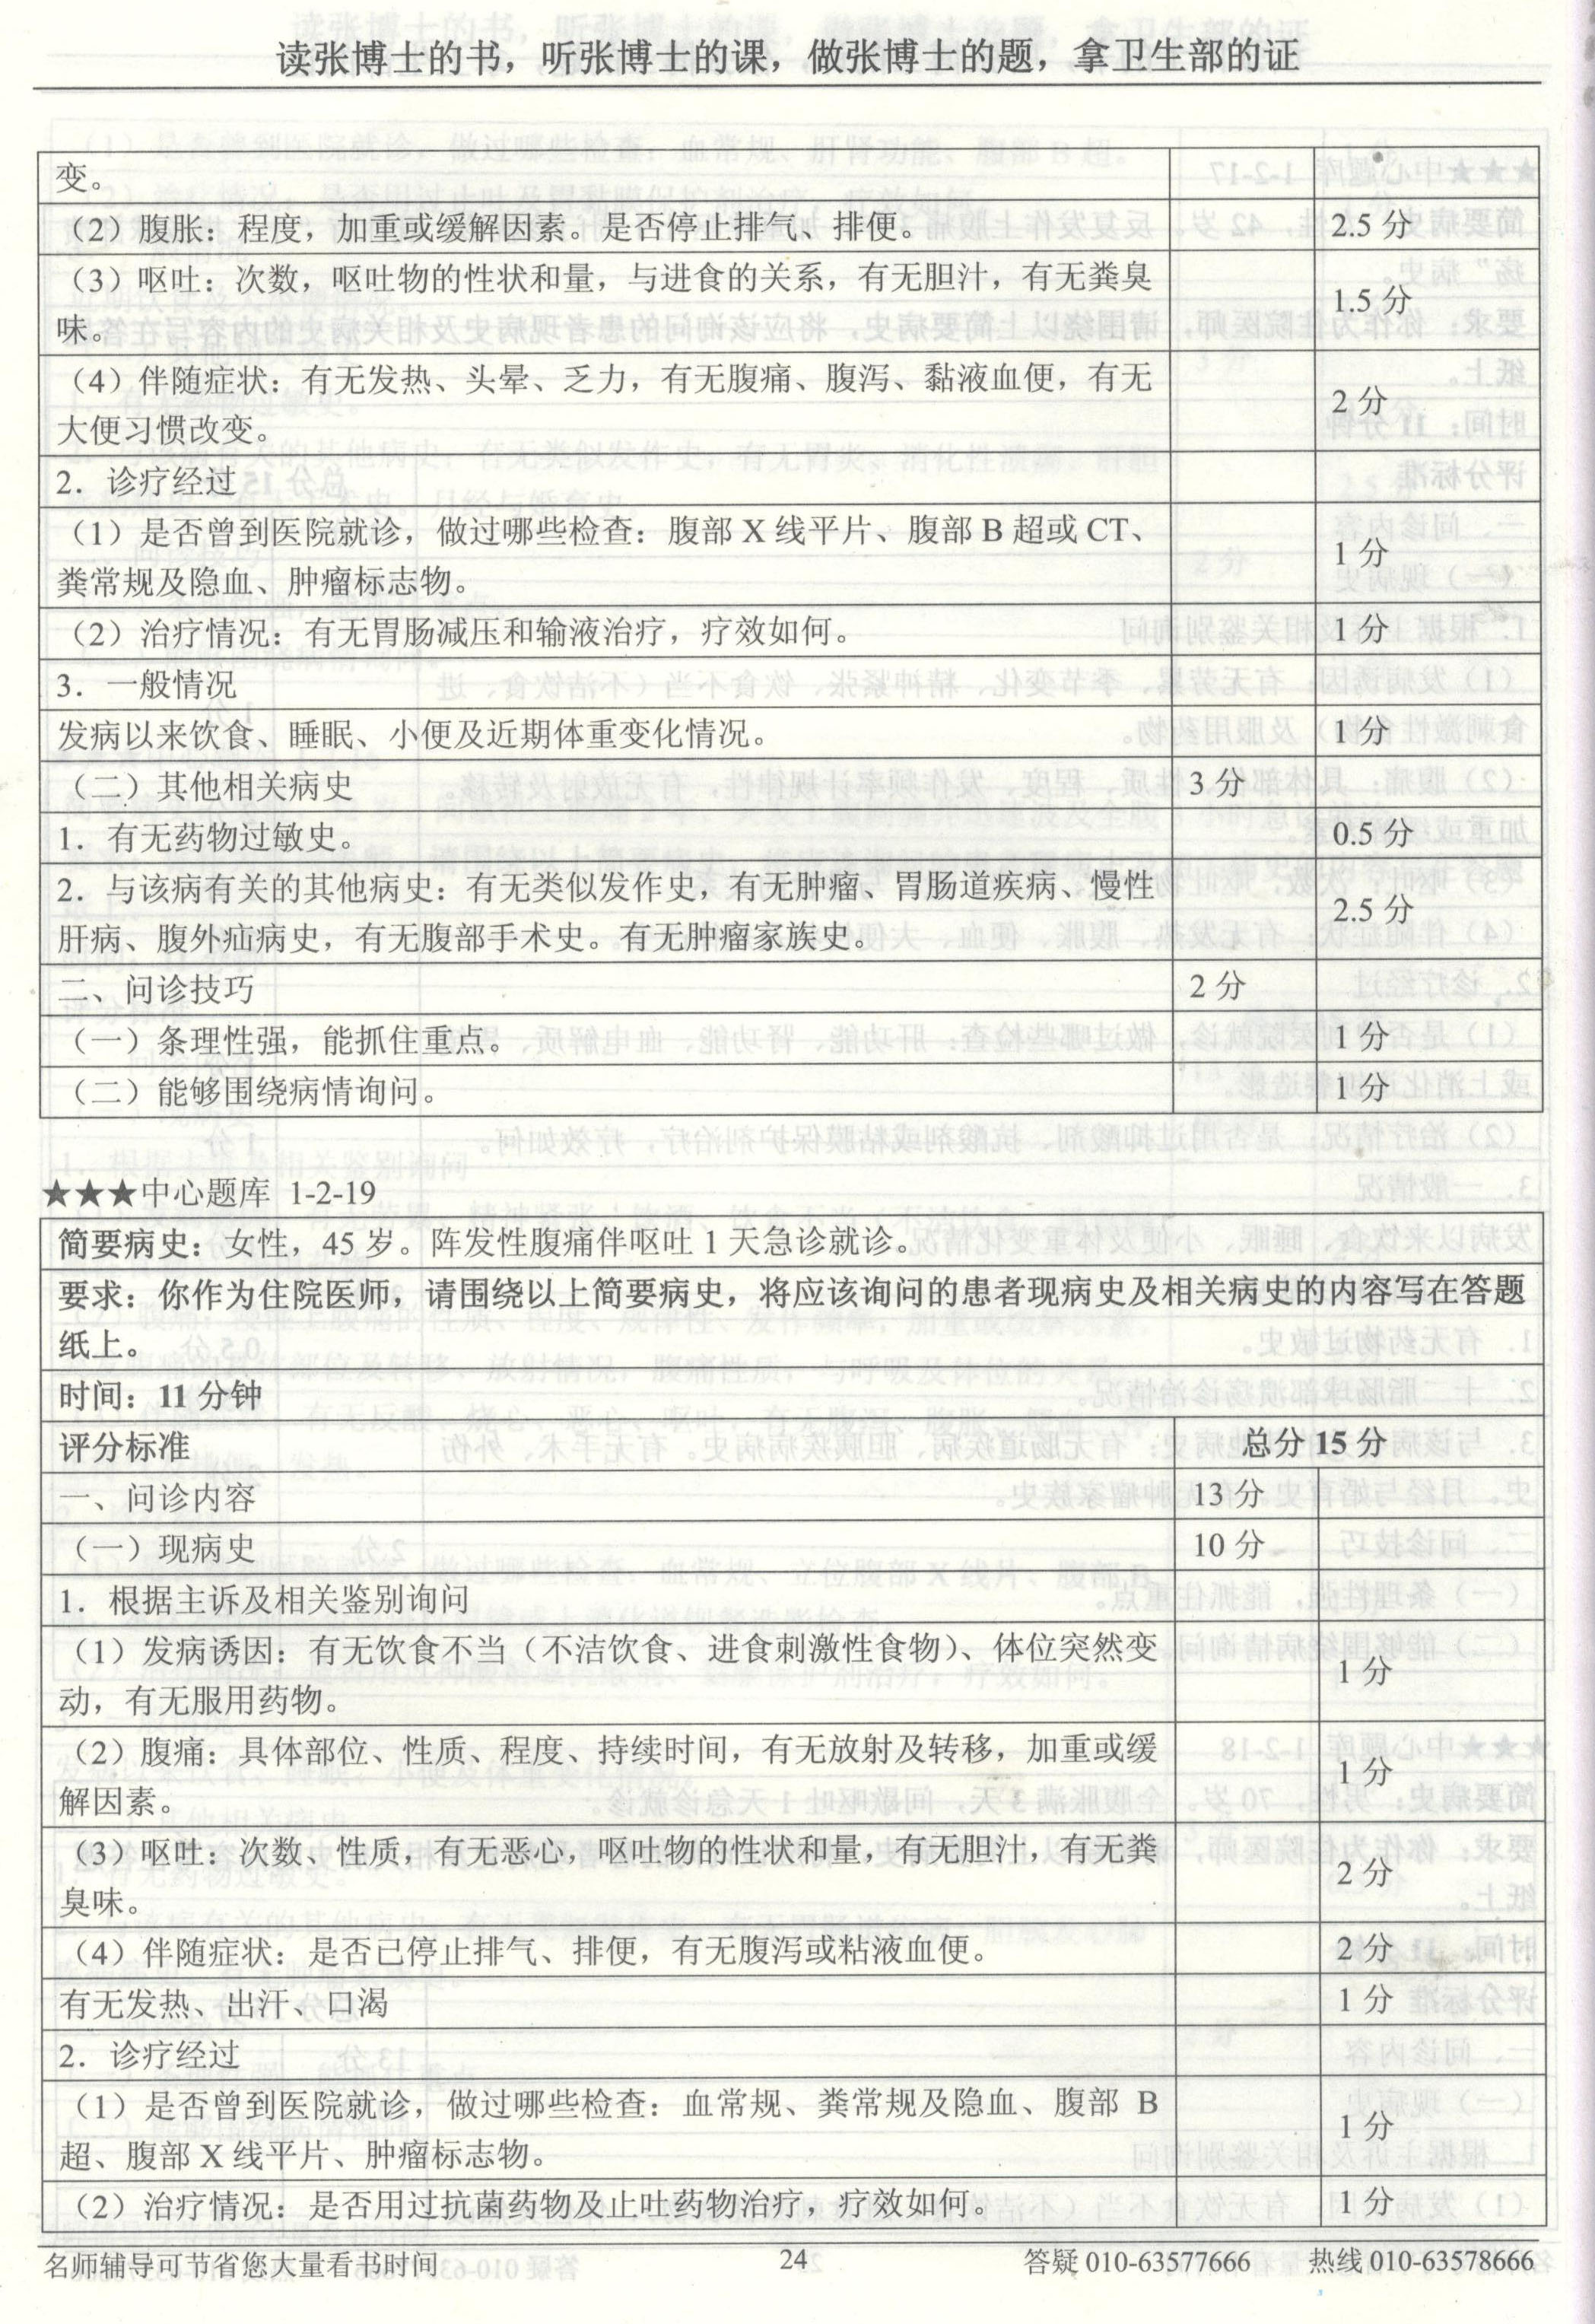 读张博士的书，听张博士的课，做张博士的题，拿卫生部的证
变。
（2）腹胀：程度，加重或缓解因素。是否停止排气、排便。 2.5 分
（3）呕吐：次数，呕吐物的性状和量，与进食的关系，有无胆汁，有无粪臭
味。 1.5 分
（4）伴随症状：有无发热、头晕、乏力，有无腹痛、腹泻、黏液血便，有无
大便习惯改变。 2 分
2．诊疗经过
（1）是否曾到医院就诊，做过哪些检查：腹部 X 线平片、腹部 B 超或 CT、
粪常规及隐血、肿瘤标志物。 1 分
（2）治疗情况：有无胃肠减压和输液治疗，疗效如何。 1 分
3．一般情况
发病以来饮食、睡眠、小便及近期体重变化情况。 1 分
（二）其他相关病史 3 分
1．有无药物过敏史。 0.5 分
2．与该病有关的其他病史：有无类似发作史，有无肿瘤、胃肠道疾病、慢性
肝病、腹外疝病史，有无腹部手术史。有无肿瘤家族史。 2.5 分
二、问诊技巧 2 分
（一）条理性强，能抓住重点。 1 分
（二）能够围绕病情询问。 1 分
★★★中心题库 1-2-19
简要病史：女性，45 岁。阵发性腹痛伴呕吐 1 天急诊就诊。
要求：你作为住院医师，请围绕以上简要病史，将应该询问的患者现病史及相关病史的内容写在答题
纸上。
时间：11 分钟
评分标准 总分 15 分
一、问诊内容 13 分
（一）现病史 10 分
1．根据主诉及相关鉴别询问
（1）发病诱因：有无饮食不当（不洁饮食、进食刺激性食物）、体位突然变
动，有无服用药物。 1 分
（2）腹痛：具体部位、性质、程度、持续时间，有无放射及转移，加重或缓
解因素。 1 分
（3）呕吐：次数、性质，有无恶心，呕吐物的性状和量，有无胆汁，有无粪
臭味。 2 分
（4）伴随症状：是否已停止排气、排便，有无腹泻或粘液血便。 2 分
有无发热、出汗、口渴 1 分
2．诊疗经过
（1）是否曾到医院就诊，做过哪些检查：血常规、粪常规及隐血、腹部 B
超、腹部 X 线平片、肿瘤标志物。 1 分
（2）治疗情况：是否用过抗菌药物及止吐药物治疗，疗效如何。 1 分
名师辅导可节省您大量看书时间 24 答疑 010-63577666 热线 010-63578666